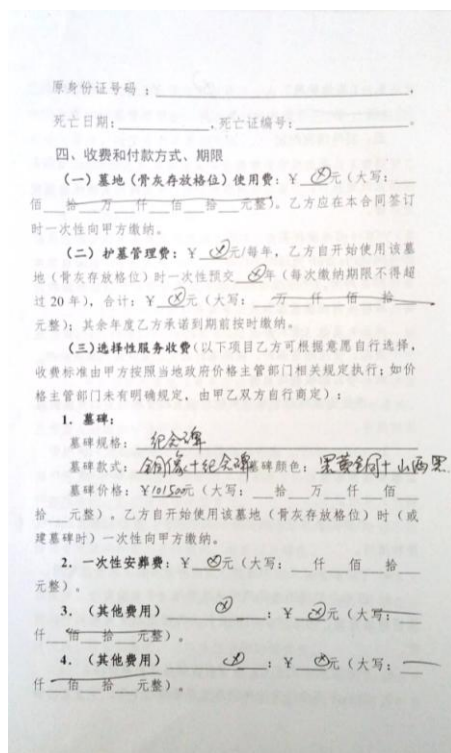 原身份证号码：____________________，
死亡日期：__________，死亡证编号：____________。
四、收费和付款方式、期限
（一）墓地（骨灰存放格位）使用费：￥ ⊗ 元（大写：___
佰___拾___万___仟___佰___拾___元整）。乙方应在本合同签订
时一次性向甲方缴纳。
（二）护墓管理费：￥ ⊗ 元/每年，乙方自开始使用该墓
地（骨灰存放格位）时一次性预交 ⊗ 年（每次缴纳期限不得超
过 20 年），合计：￥ ⊗ 元（大写：___万___仟___佰___拾___
元整）；其余年度乙方承诺到期前按时缴纳。
（三）选择性服务收费（以下项目乙方可根据意愿自行选择，
收费标准由甲方按照当地政府价格主管部门相关规定执行；如价
格主管部门未有明确规定，由甲乙双方自行商定）：
1. 墓碑：
墓碑规格：纪念碑
墓碑款式：铜像+纪念碑 墓碑颜色：黑黄铜+山西黑
墓碑价格：￥101500元（大写：___拾___万___仟___佰___
拾___元整）。乙方自开始使用该墓地（骨灰存放格位）时（或
建墓碑时）一次性向甲方缴纳。
2. 一次性安葬费：￥ ⊗ 元（大写：___仟___佰___拾___
元整）。
3.（其他费用）____⊗____：￥ ⊗ 元（大写：___
仟___佰___拾___元整）。
4.（其他费用）____⊗____：￥ ⊗ 元（大写：___
仟___佰___拾___元整）。